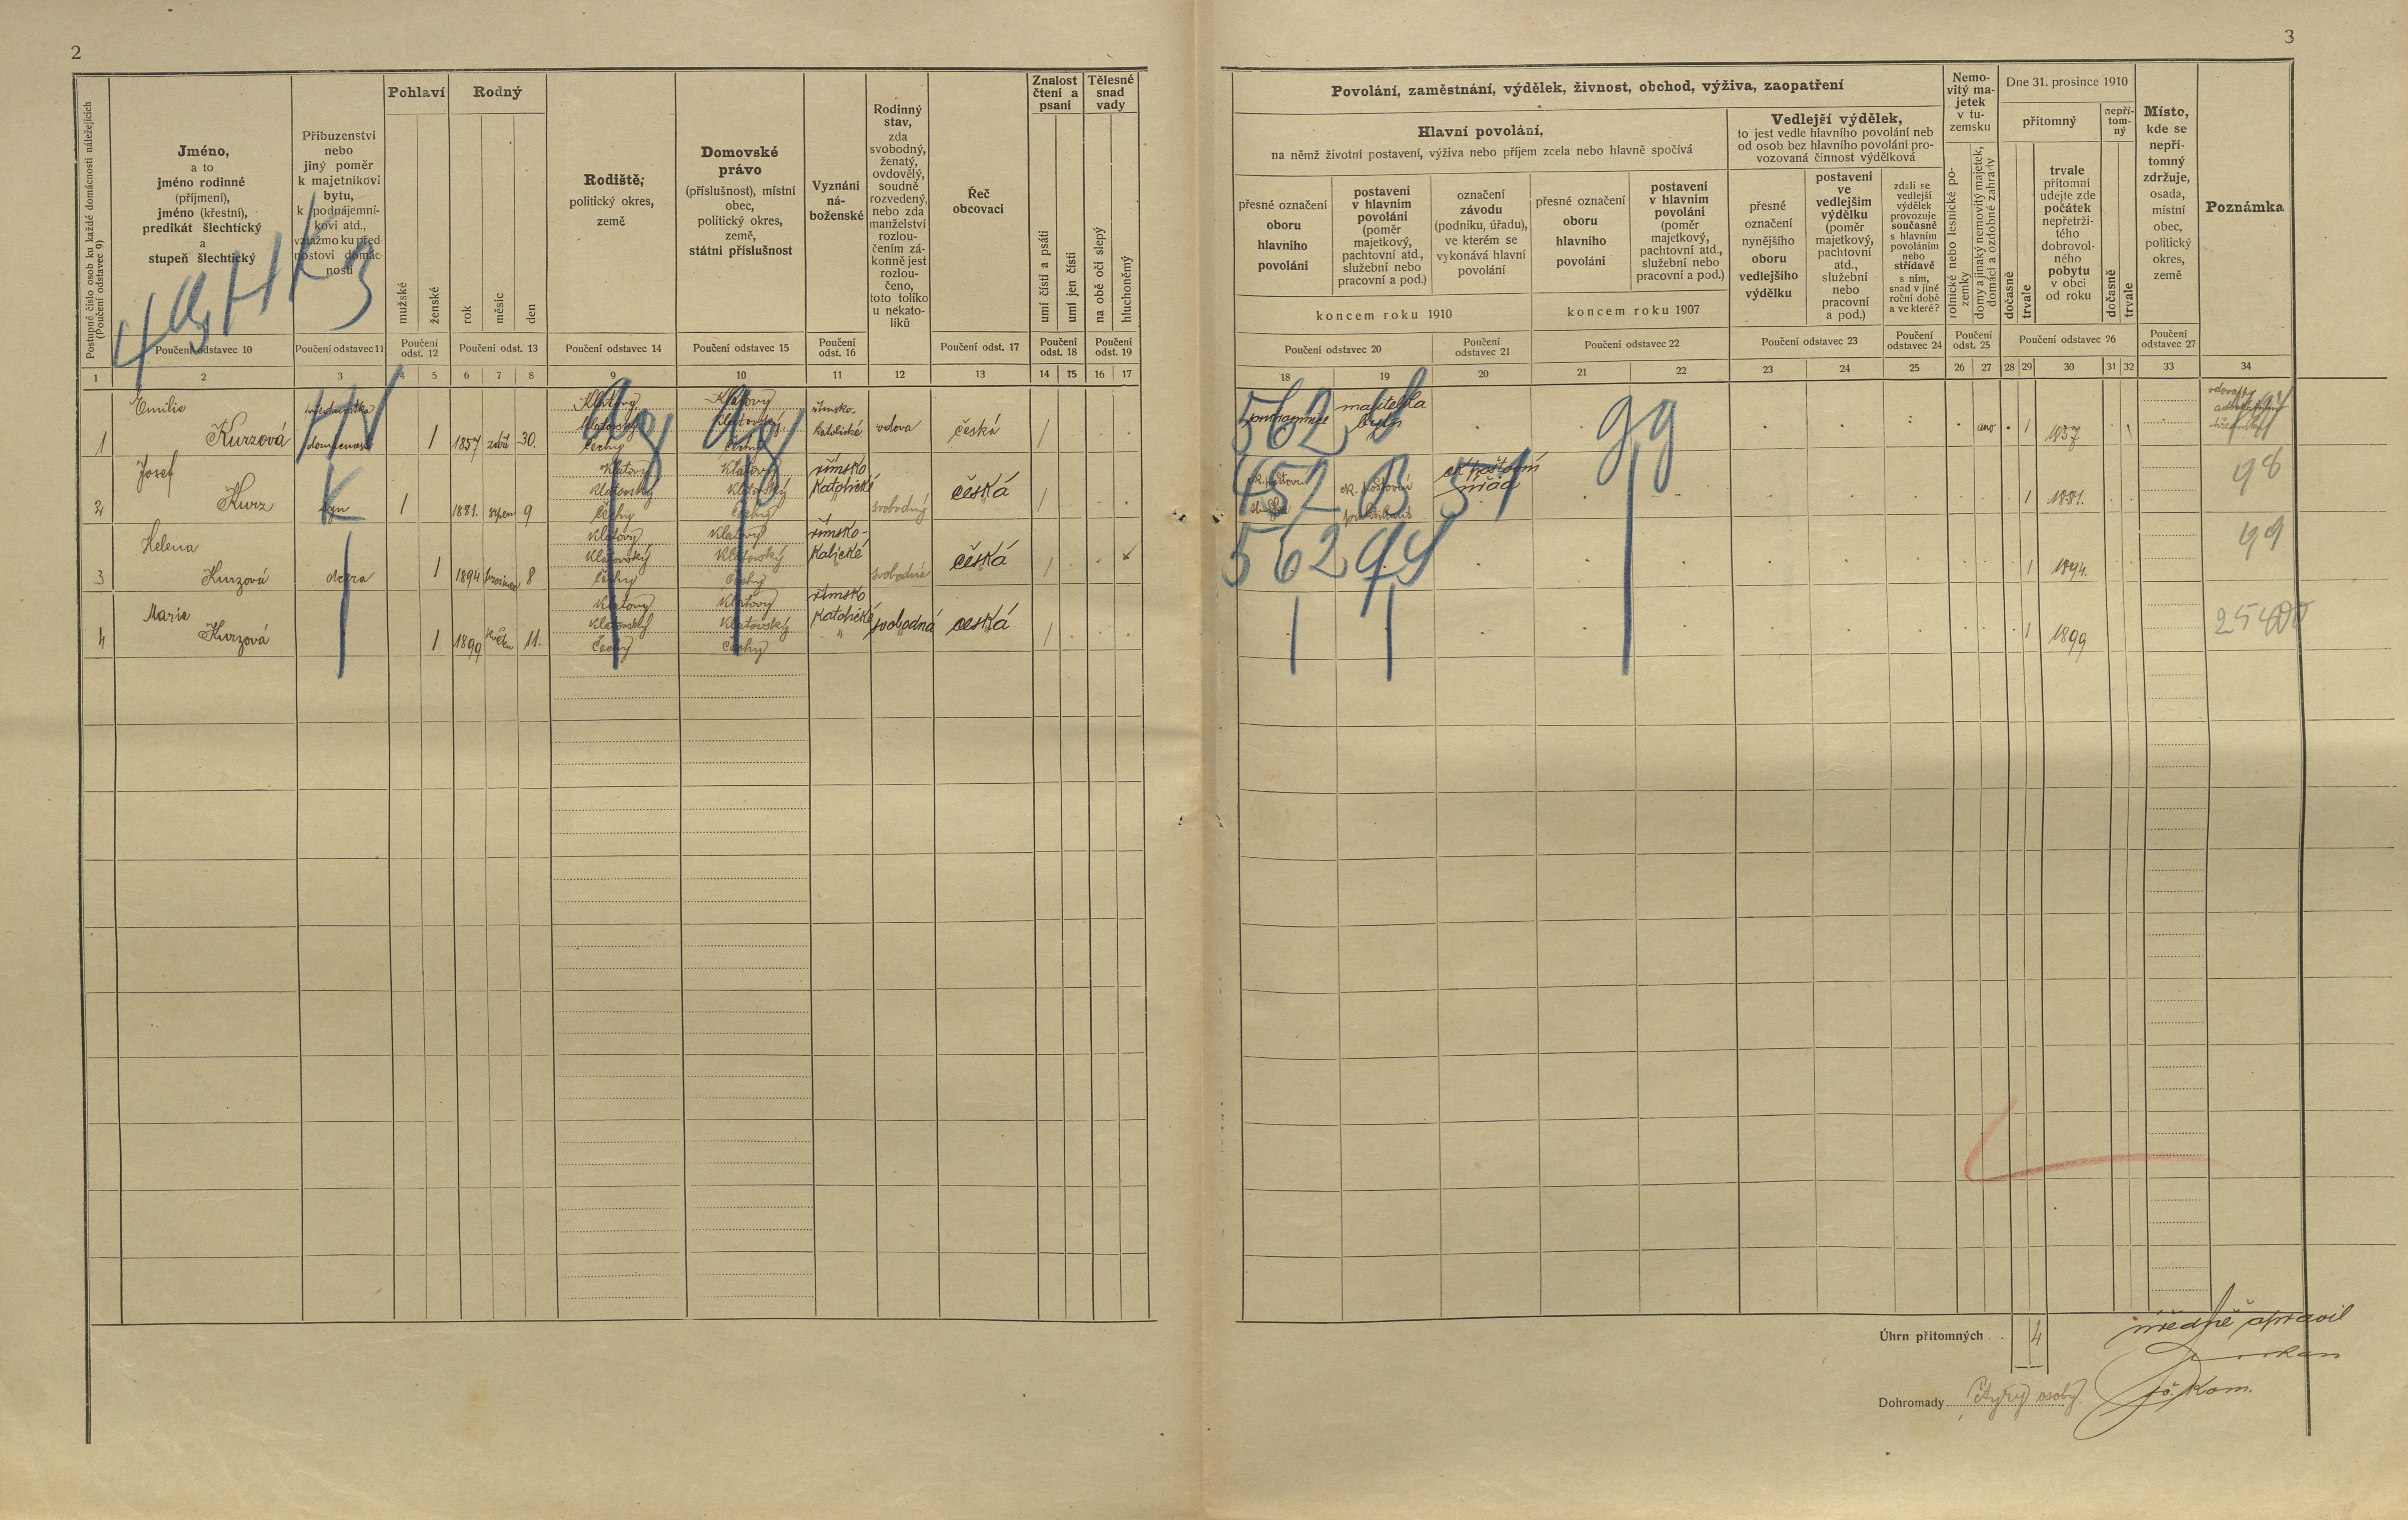 2
Postupné číslo osob ku každé domácnosti náležejících
(Poučení odstavec 9)
Jméno,
a to
jméno rodinné
(příjmení),
jméno (křestní),
predikát šlechtický
a
stupeň šlechtický
Poučení odstavec 10
Příbuzenství
nebo
jiný poměr
k majetníkovi
bytu,
k podnájemní-
kovi atd.,
vztažmo ku před-
nostovi domác-
nosti
Poučení odstavec 11
Pohlaví
mužské
ženské
Poučení
odst. 12
Rodný
rok
měsíc
den
Poučení odst. 13
Rodiště,
politický okres,
země
Poučení odstavec 14
Domovské
právo
(příslušnost), místní
obec,
politický okres,
země,
státní příslušnost
Poučení odstavec 15
Vyznání
ná-
boženské
Poučení
odst. 16
Rodinný
stav,
zda
svobodný,
ženatý,
ovdovělý,
soudně
rozvedený,
nebo zda
manželství
rozlou-
čením zá-
konně jest
rozlou-
čeno,
toto toliko
u nekato-
líků
Řeč
obcovací
Poučení odst. 17
Znalost
čtení a
psaní
umí čísti a psáti
umí jen čísti
Poučení
odst. 18
Tělesné
snad
vady
na obě oči slepý
hluchoněmý
Poučení
odst. 19
1 2 3 4 5 6 7 8 9 10 11 12 13 14 15 16 17
4 HK3
1
Emilie
Kurzová
1
1857 září 30.
Klatovy
Klatovský
Čechy
Klatovy
Klatovský
Čechy
římsko-
katolické
vdova
česká
/
2
Josef
Kurz
syn
1
1881. srpen 9
Klatovy
Klatovský
Čechy
Klatovy
Klatovský
Čechy
římsko
katolické
svobodný
česká
/
3
Helena
Kurzová
dcera
1
1894 prosinec 8
Klatovy
Klatovský
Čechy
Klatovy
Klatovský
Čechy
římsko-
svobodná
česká
/
4
Marie
Kurzová
1
1899 květen 11.
Klatovy
Klatovský
Čechy
Klatovy
Klatovský
Čechy
římsko
katolické
svobodná
česká
/
3
Povolání, zaměstnání, výdělek, živnost, obchod, výživa, zaopatření
Hlavní povolání,
na němž životní postavení, výživa nebo příjem zcela nebo hlavně spočívá
přesné označení
oboru
hlavního
povolání
postavení
v hlavním
povolání
(poměr
majetkový,
pachtovní atd.,
služební nebo
pracovní a pod.)
koncem roku 1910
Poučení odstavec 20
označení
závodu
(podniku, úřadu),
ve kterém se
vykonává hlavní
povolání
Poučení
odstavec 21
přesné označení
oboru
hlavního
povolání
postavení
v hlavním
povolání
(poměr
majetkový,
pachtovní atd.,
služební nebo
pracovní a pod.)
koncem roku 1907
Poučení odstavec 22
Vedlejší výdělek,
to jest vedle hlavního povolání neb
od osob bez hlavního povolání pro-
vozovaná činnost výdělková
přesné
označení
nynějšího
oboru
vedlejšího
výdělku
postavení
ve
vedlejším
výdělku
(poměr
majetkový,
pachtovní
atd.,
služební
nebo
pracovní
a pod.)
Poučení odstavec 23
zdali se
vedlejší
výdělek
provozuje
současně
s hlavním
povoláním
nebo
střídavě
s ním,
snad v jiné
roční době
a ve které?
Poučení
odstavec 24
Nemo-
vitý ma-
jetek
v tu-
zemsku
rolnické nebo lesnické po-
zemky
domy a jinaký nemovitý majetek,
domácí a ozdobné zahrady
Poučení
odst. 25
Dne 31. prosince 1910
přítomný
dočasně
trvale
trvale
přítomní
udejte zde
počátek
nepřetrži-
tého
dobrovol-
ného
pobytu
v obci
od roku
nepří-
tom-
ný
dočasně
trvale
Poučení odstavec 26
Místo,
kde se
nepří-
tomný
zdržuje,
osada,
místní
obec,
politický
okres,
země
Poučení
odstavec 27
Poznámka
18 19 20 21 22 23 24 25 26 27 28 29 30 31 32 33 34
562
majitelka
bytu
99
ano
1
1857
452 B 51
ck. poštovní
služba
ck. poštovní
praktikant
ck poštovní
úřad
1
1881.
98
562
1
1894.
99
1
1899
Úhrn přítomných . . 4
Dohromady čtyry osoby.
úředně opravil
sč. kom.